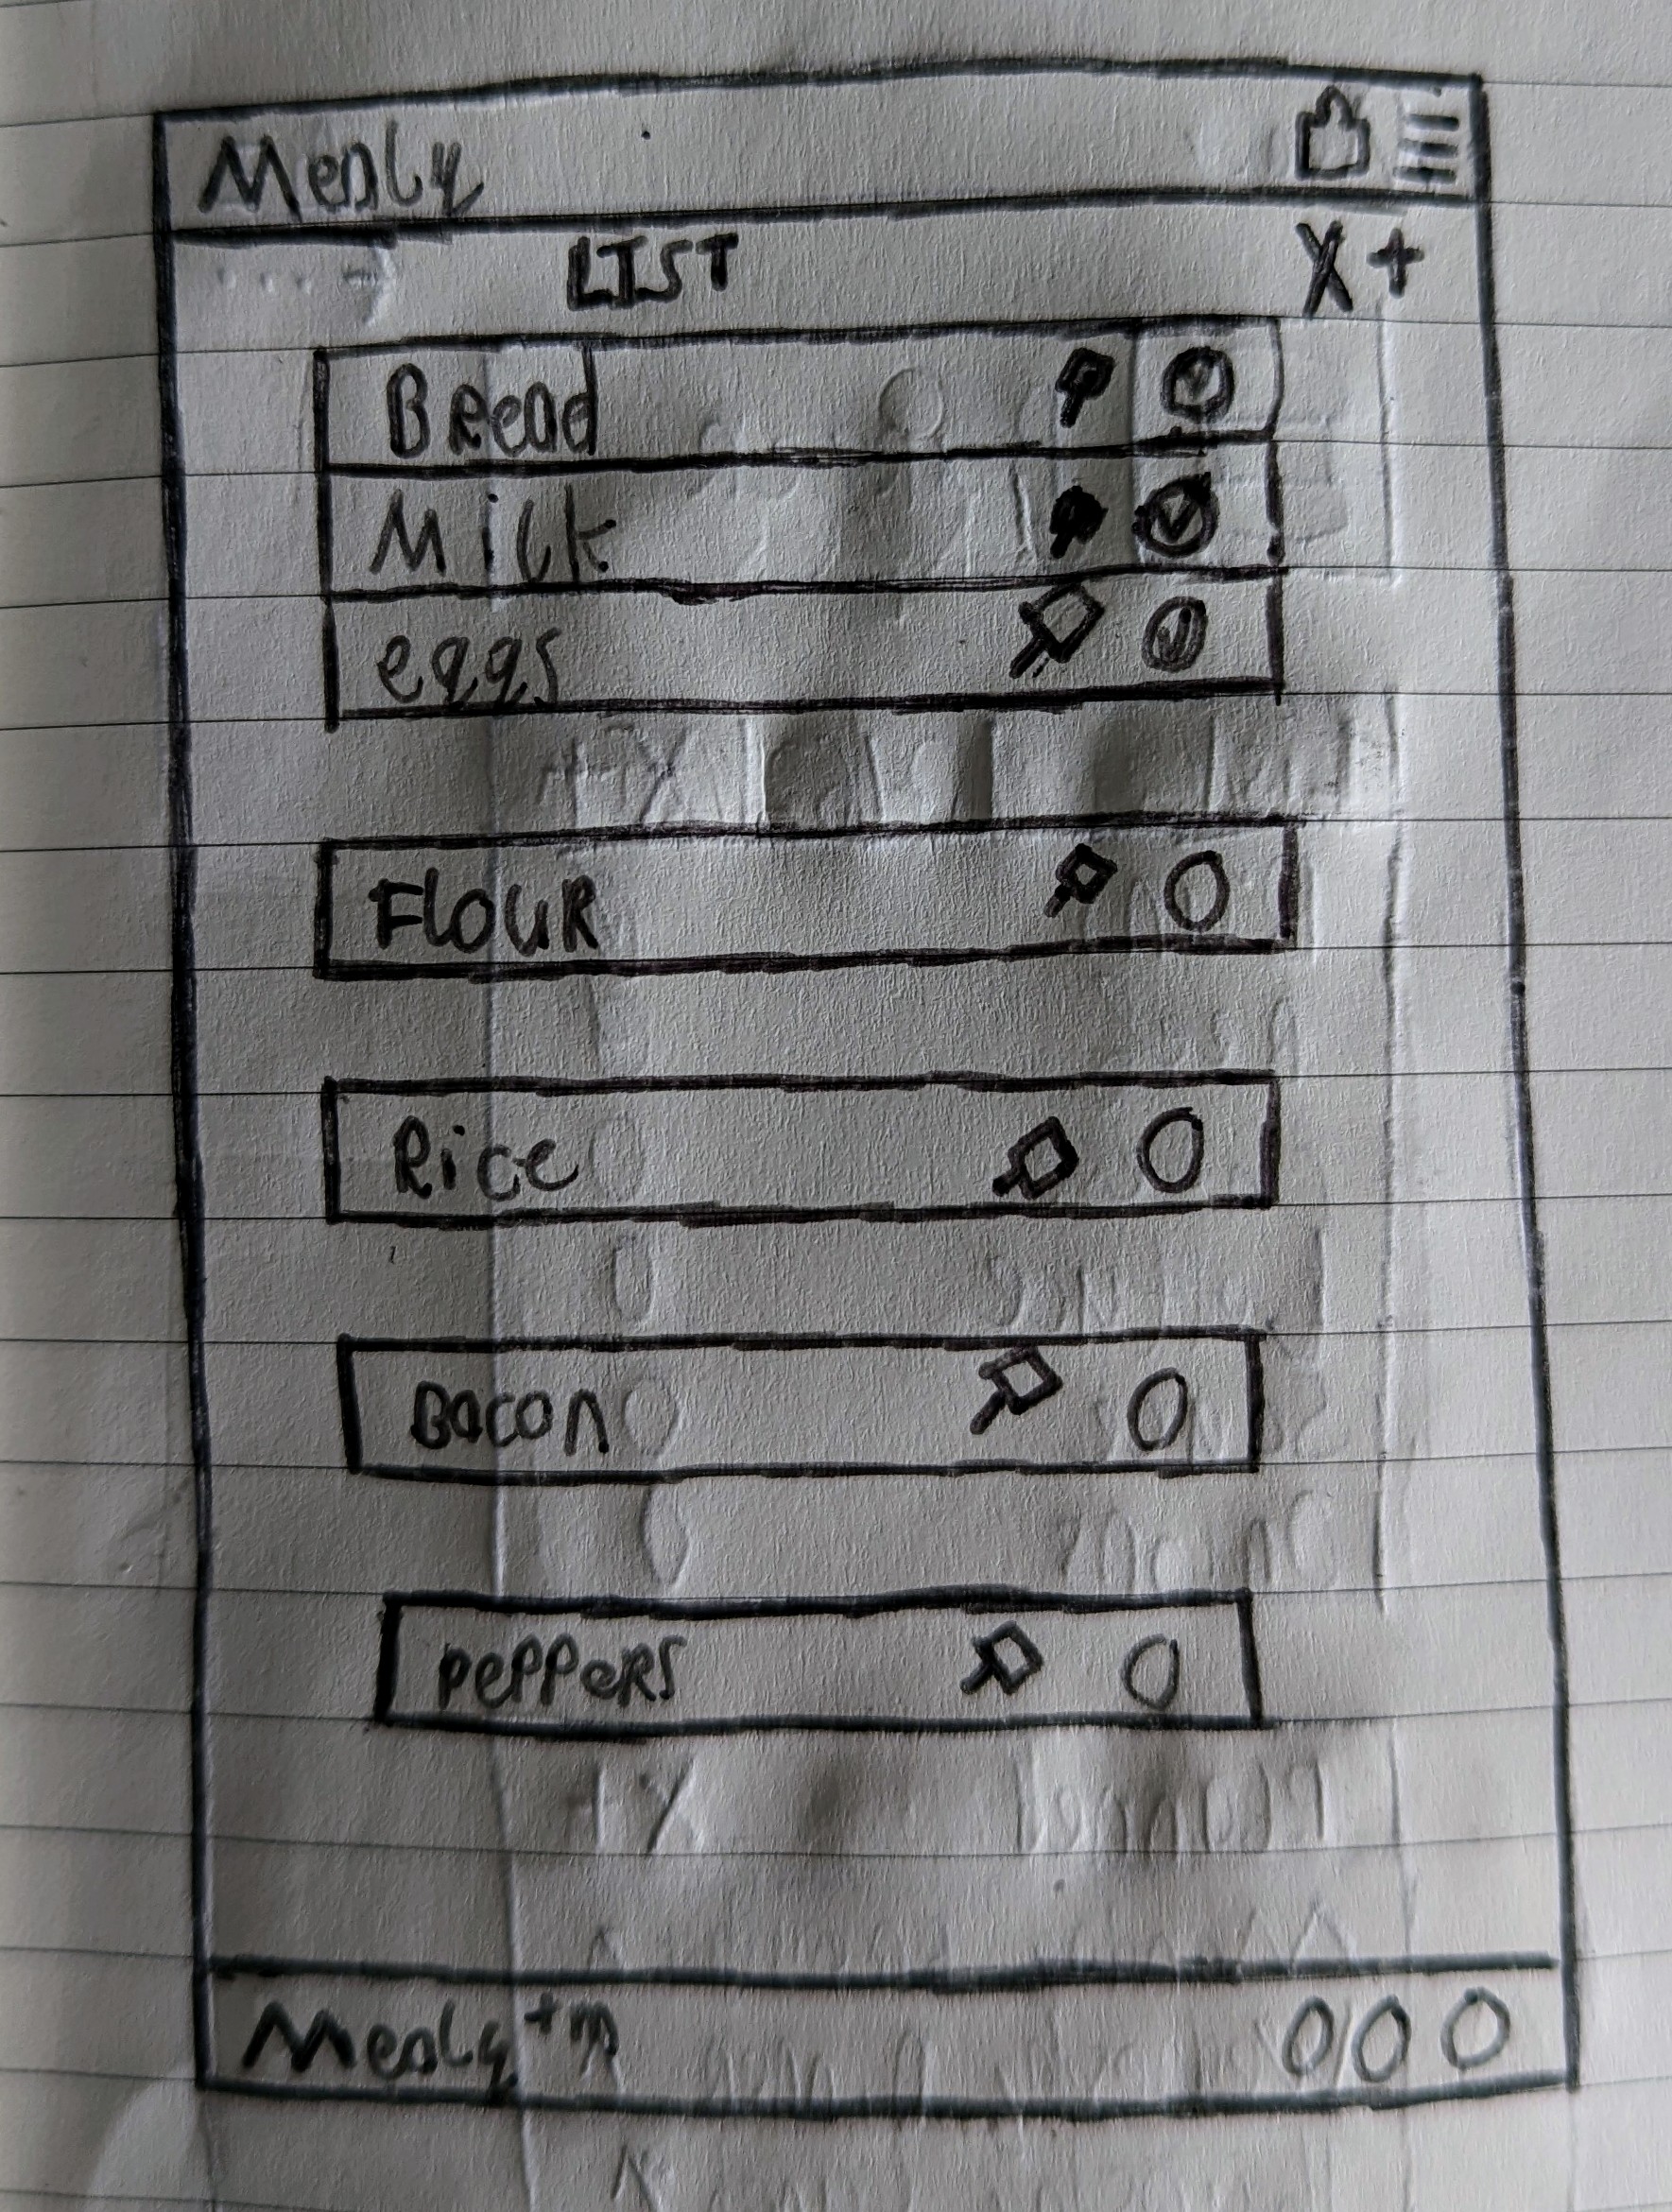 Mealy
LIST X +
Bread
Milk
eggs
FLOUR
Rice
Bacon
PePPeRS
Mealy tm